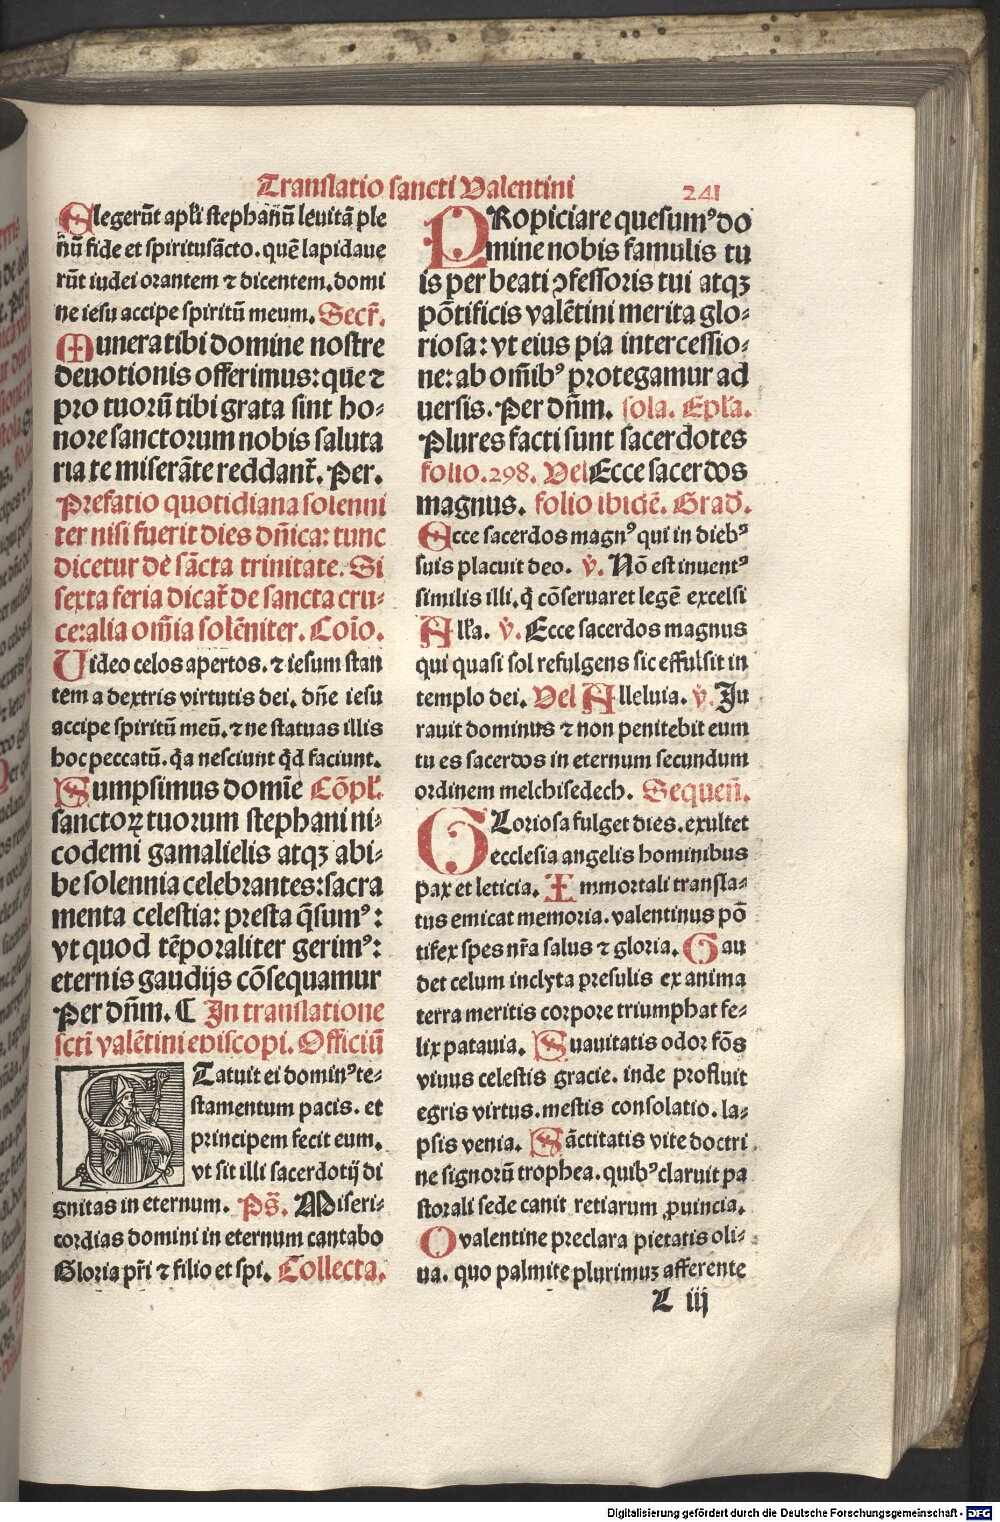 Translatio sancti Valentini 241
Elegerūt apłi stephanū leuitā ple
nū fide et spiritusācto. quē lapidaue
rūt iudei orantem ⁊ dicentem. domi
ne iesu accipe spiritū meum. Secr̄.
Munera tibi domine nostre
deuotionis offerimus: que ⁊
pro tuorū tibi grata sint ho⸗
nore sanctorum nobis saluta
ria te miserāte reddant̄. Per.
Prefatio quotidiana solenni
ter nisi fuerit dies dn̄ica: tunc
dicetur de sācta trinitate. Si
sexta feria dicat̄ de sancta cru⸗
ce: alia om̄ia solēniter. Coīo.
Uideo celos apertos. ⁊ iesum stan
tem a dextris virtutis dei. dn̄e iesu
accipe spiritū meū. ⁊ ne statuas illis
hoc peccatū. q̄a nesciunt q̄d faciunt.
Sumpsimus domīe Cōpl̄.
sanctoꝝ tuorum stephani ni⸗
codemi gamalielis atqꝫ abi⸗
be solennia celebrantes: sacra
menta celestia: presta q̄sumꝰ:
vt quod tēporaliter gerimꝰ:
eternis gaudijs cōsequamur
Per dn̄m. ¶ In translatione
scti valētini episcopi. Officiū
STatuit ei dominꝰ te⸗
stamentum pacis. et
principem fecit eum.
vt sit illi sacerdotij di
gnitas in eternum. Ps̄. Miseri⸗
cordias domini in eternum cantabo
Gloria pr̄i ⁊ filio et spi. Collecta.
PRopiciare quesumꝰ do
mine nobis famulis tu
is per beati ꝯfessoris tui atqꝫ
pōtificis valētini merita glo⸗
riosa: vt eius pia intercessio⸗
ne: ab om̄ibꝰ protegamur ad
uersis. Per dn̄m. sola. Epl̄a.
Plures facti sunt sacerdotes
folio. 298. Vel Ecce sacerdos
magnus. folio ibidē. Grad̄.
Ecce sacerdos magnꝰ qui in diebꝰ
suis placuit deo. v̄. Nō est inuentꝰ
similis illi. q̄ cōseruaret legē excelsi
All̄a. v̄. Ecce sacerdos magnus
qui quasi sol refulgens sic effulsit in
templo dei. Vel Alleluia. v̄. Ju
rauit dominus ⁊ non penitebit eum
tu es sacerdos in eternum secundum
ordinem melchisedech. Sequen̄.
GLoriosa fulget dies. exultet
ecclesia angelis hominibus
pax et leticia. Immortali transla⸗
tus emicat memoria. valentinus pō
tifex spes nr̄a salus ⁊ gloria. Gau
det celum inclyta presulis ex anima
terra meritis corpore triumphat fe⸗
lix patauia. Suauitatis odor fōs
viuus celestis gracie. inde profluit
egris virtus. mestis consolatio. la⸗
psis venia. Sāctitatis vite doctri
ne signorū trophea. quibꝰ claruit pa
storali sede canit retiarum ꝓuincia.
O valentine preclara pietatis oli⸗
ua. quo palmite plurimuꝫ afferente
L iij
Digitalisierung gefördert durch die Deutsche Forschungsgemeinschaft - DFG